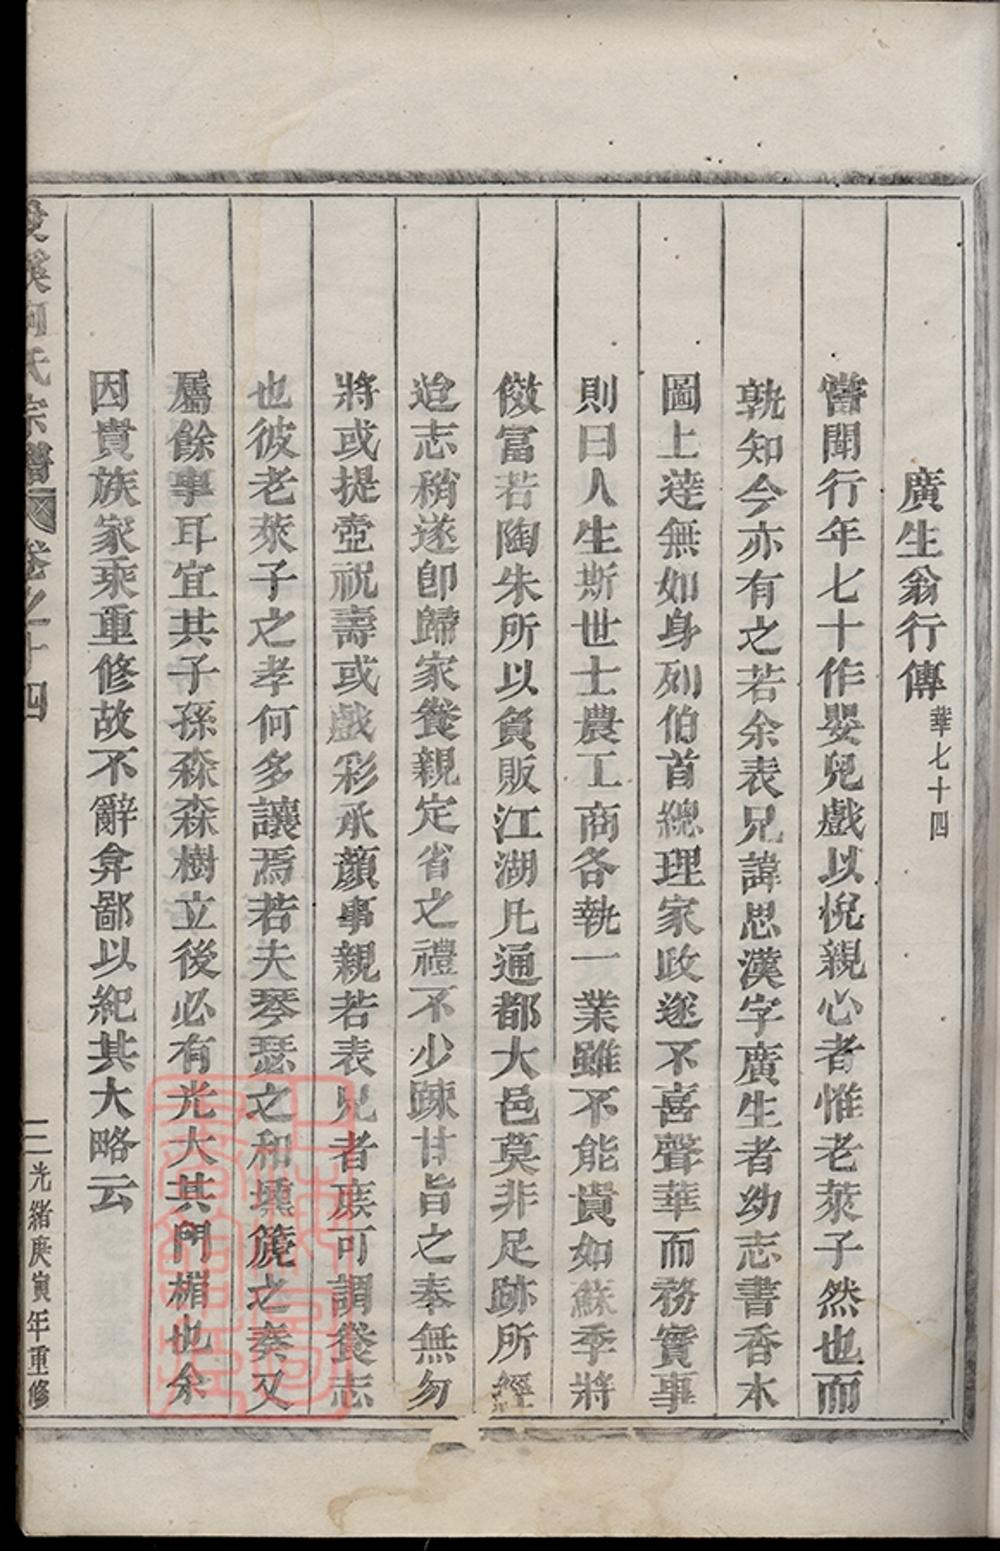 廣生翁行傳 華七十四
嘗聞行年七十作嬰兒戲以悅親心者惟老萊子然也而
孰知今亦有之若余表兄諱思漢字廣生者幼志書香木
圖上達無如身列伯首總理家政遂不喜聲華而務實事
則曰人生斯世士農工商各執一業雖不能貴如蘇季將
傚富若陶朱所以負販江湖凡通都大邑莫非足跡所經
迨志稍遂卽歸家養親定省之禮不少踈甘旨之奉無勿
將或提壺祝壽或戲彩承顏事親若表兄者庶可謂養志
也彼老萊子之孝何多讓焉若夫琴瑟之和壎箎之奏又
屬餘事耳宜其子孫森森樹立後必有光大其門楣也余
因貴族家乘重修故不辭弇鄙以紀其大略云
溪何氏宗譜 卷之十四
三 光緒庚寅年重修